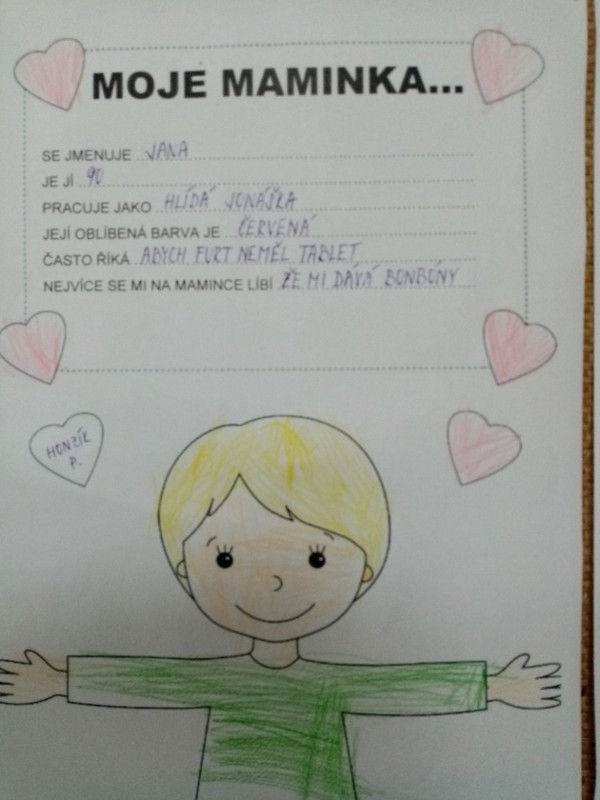 MOJE MAMINKA...
SE JMENUJE JANA
JE JÍ 90
PRACUJE JAKO HLÍDÁ JONÁŠKA
JEJÍ OBLÍBENÁ BARVA JE ČERVENÁ
ČASTO ŘÍKÁ ABYCH FURT NEMĚL TABLET
NEJVÍCE SE MI NA MAMINCE LÍBÍ ŽE MI DÁVÁ BONBÓNY
HONZÍK
P.